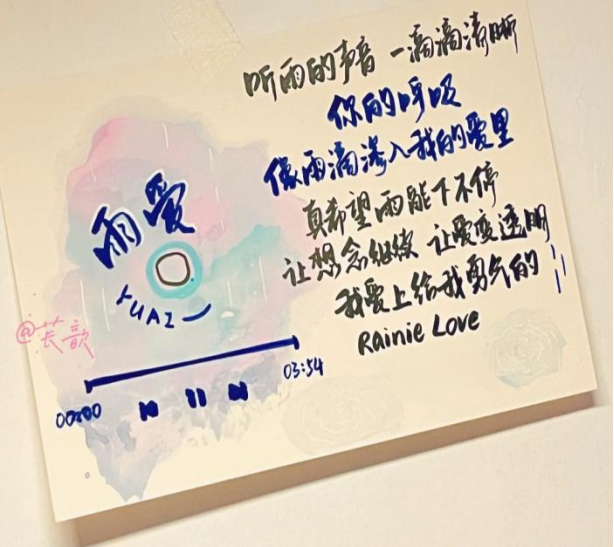 听雨的声音 一滴滴清晰
你的呼吸
像雨滴渗入我的爱里
真希望雨能下不停
让想念继续 让爱变透明
我爱上给我勇气的
Rainie Love
雨爱
@芸歆
00:00
03:54